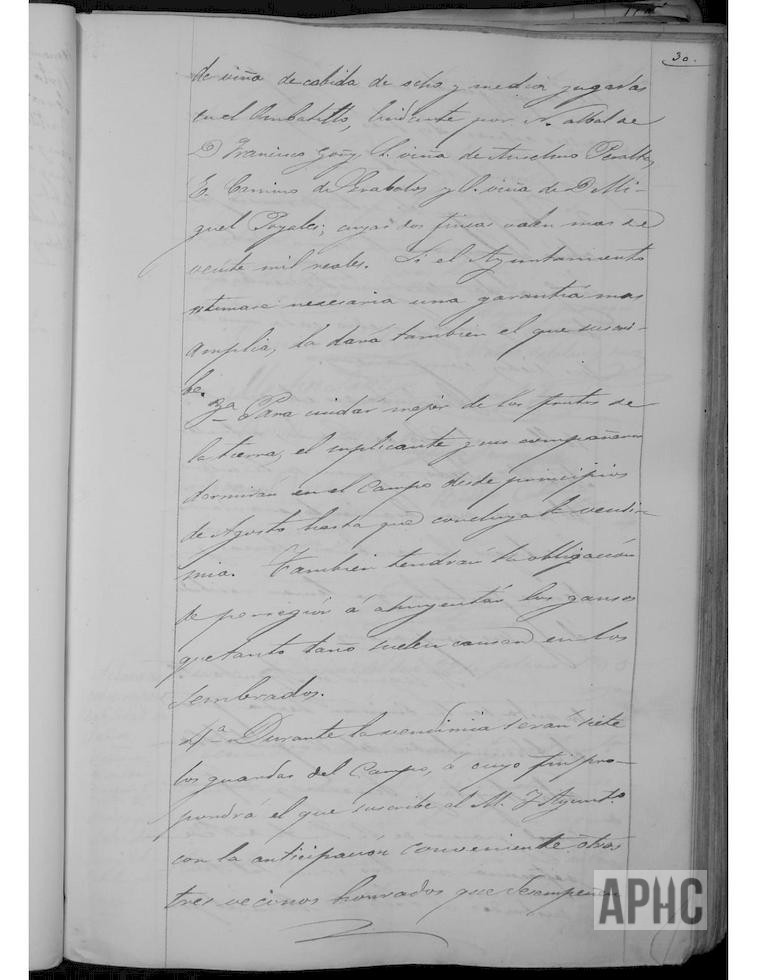 30.
de viña de cabida de ocho y media yugadas
en el Ombatillo, lindante por N. albal de
D Francisco Goñy, S. viña de Anselmo Peralta,
E. Camino de Grabalos y O. viña de D Mi-
guel Poyales; cuyas dos fincas valen mas de
veinte mil reales. Si el Ayuntamiento
estimase necesaria una garantia mas
amplia, la dará tambien el que suscri-
be.
3ª Para cuidar mejor de los frutos de
la tierra, el suplicante y sus compañeros
dormirán en el Campo desde principios
de Agosto hasta que concluya la vendi-
mia. Tambien tendran la obligación
de perseguir ó ahuyentar los gansos
que tanto daño suelen causar en los
sembrados.
4ª Durante la vendimia seran siete
los guardas del Campo, á cuyo fin pro-
pondrá el que suscribe al M. Y Ayunt.º
con la anticipación conveniente otros
tres vecinos honrados que desempeñen
APHC